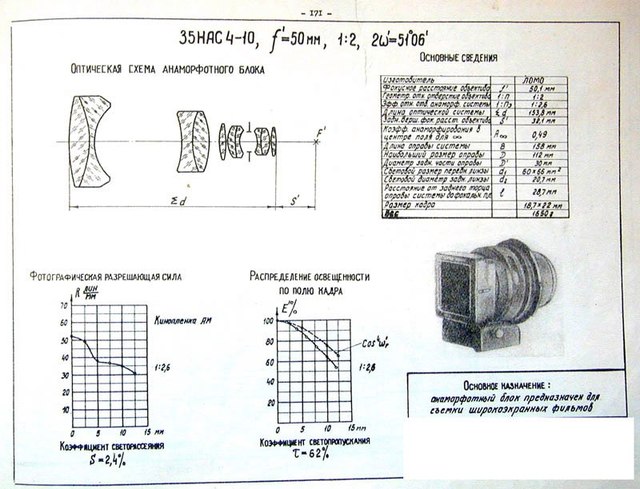 - 171 -
35НАС 4-10, f'=50мм, 1:2, 2ω'=51°06'
Оптическая схема анаморфотного блока
F'
Σd
S'
Основные сведения
Изготовитель ЛОМО
Фокусное расстояние объектива f' 50,1 мм
Геометр. отн. отверстие объектива 1:п 1:2
Эфф. отн. отв. анаморф. системы 1:пэ 1:2,6
Длина оптической системы Σd 153,8 мм
Задн. верш. фок. расст. объектива 32,1 мм
Коэфф. анаморфирования в центре поля для ∞ A∞ 0,49
Длина оправы системы B 158 мм
Наибольший размер оправы D 112 мм
Диаметр задн. части оправы D' 30 мм
Световой размер передн. линзы d₁ 60×66 мм²
Световой диаметр задн. линзы d₂ 20,7 мм
Расстояние от заднего торца оправы системы до фокальн. пл. ℓ 28,7 мм
Размер кадра 18,7×22 мм
Вес 1650 г
Фотографическая разрешающая сила
R лин/мм
70
60
50
40
30
20
10
0 5 10 15 мм
Кинопленка АМ
1:2,6
Коэффициент светорассеяния
S=2,4%
Распределение освещенности
по полю кадра
E' %
100
80
60
40
20
0 5 10 15 мм
Cos⁴ω'
1:2,6
Коэффициент светопропускания
τ=62%
Основное назначение:
анаморфотный блок предназначен для
съемки широкоэкранных фильмов